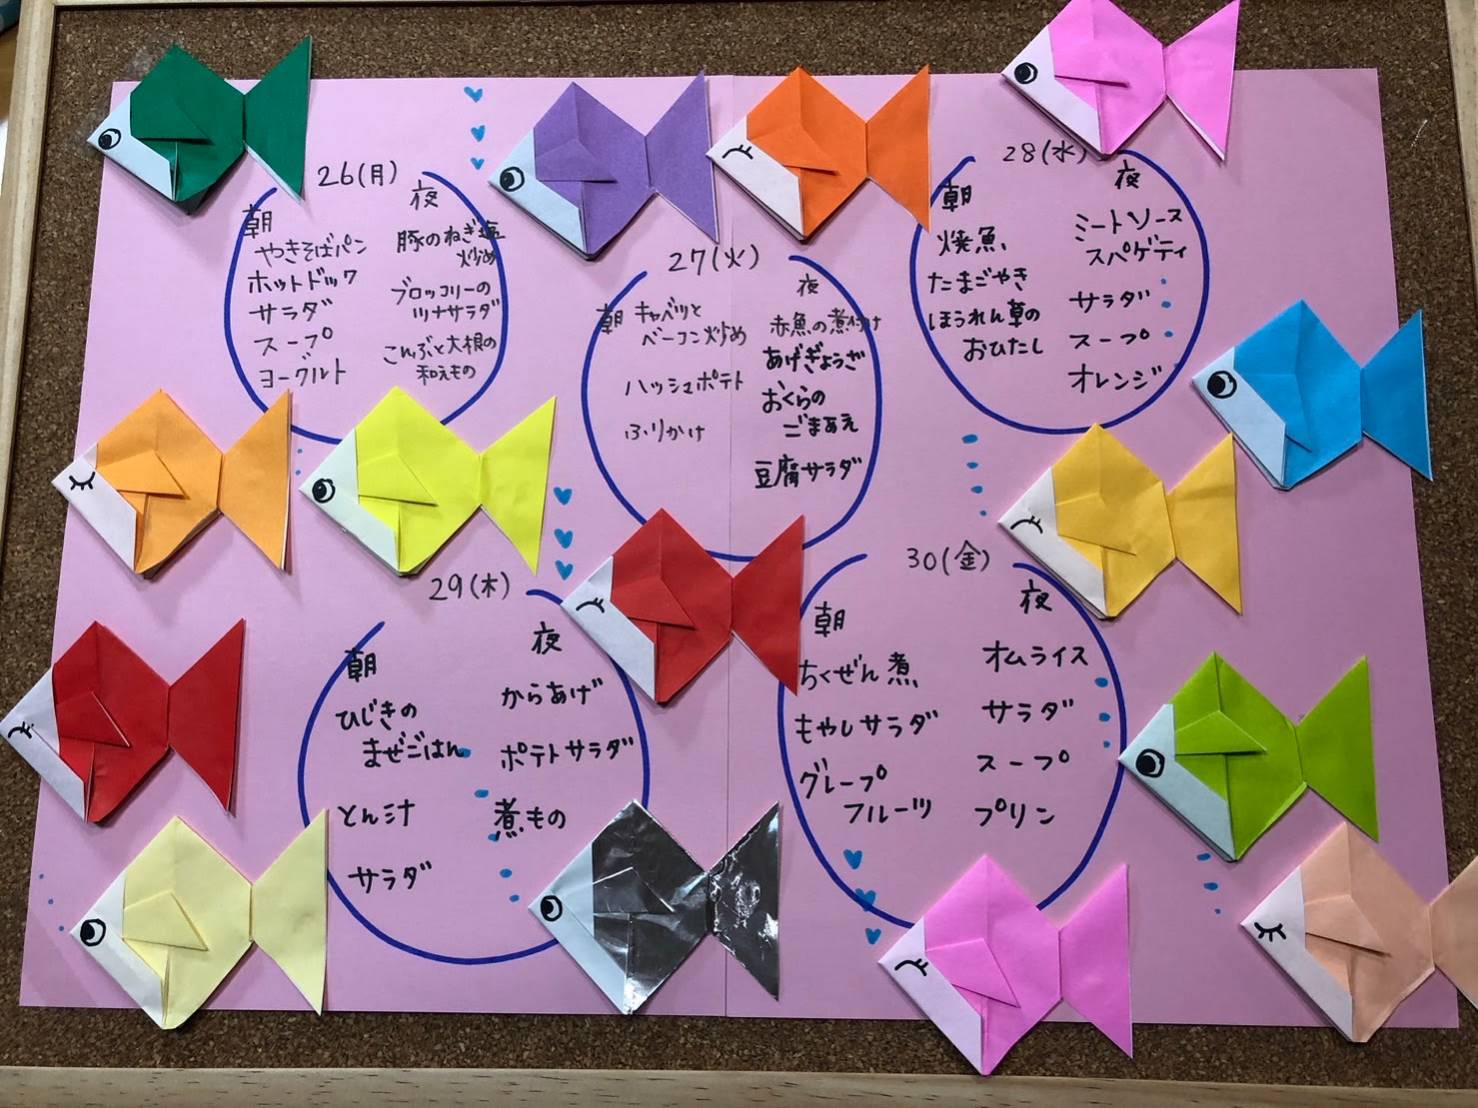 26(月)
朝
やきそばパン
ホットドック
サラダ
スープ
ヨーグルト
夜
豚のねぎ塩
炒め
ブロッコリーの
ツナサラダ
こんぶと大根の
和えもの
27(火)
朝
キャベツと
ベーコン炒め
ハッシュポテト
ふりかけ
夜
赤魚の煮付け
あげぎょうざ
おくらの
ごまあえ
豆腐サラダ
28(水)
朝
焼魚
たまごやき
ほうれん草の
おひたし
夜
ミートソース
スパゲティ
サラダ
スープ
オレンジ
29(木)
朝
ひじきの
まぜごはん
とん汁
サラダ
夜
からあげ
ポテトサラダ
煮もの
30(金)
朝
ちくぜん煮
もやしサラダ
グレープ
フルーツ
夜
オムライス
サラダ
スープ
プリン